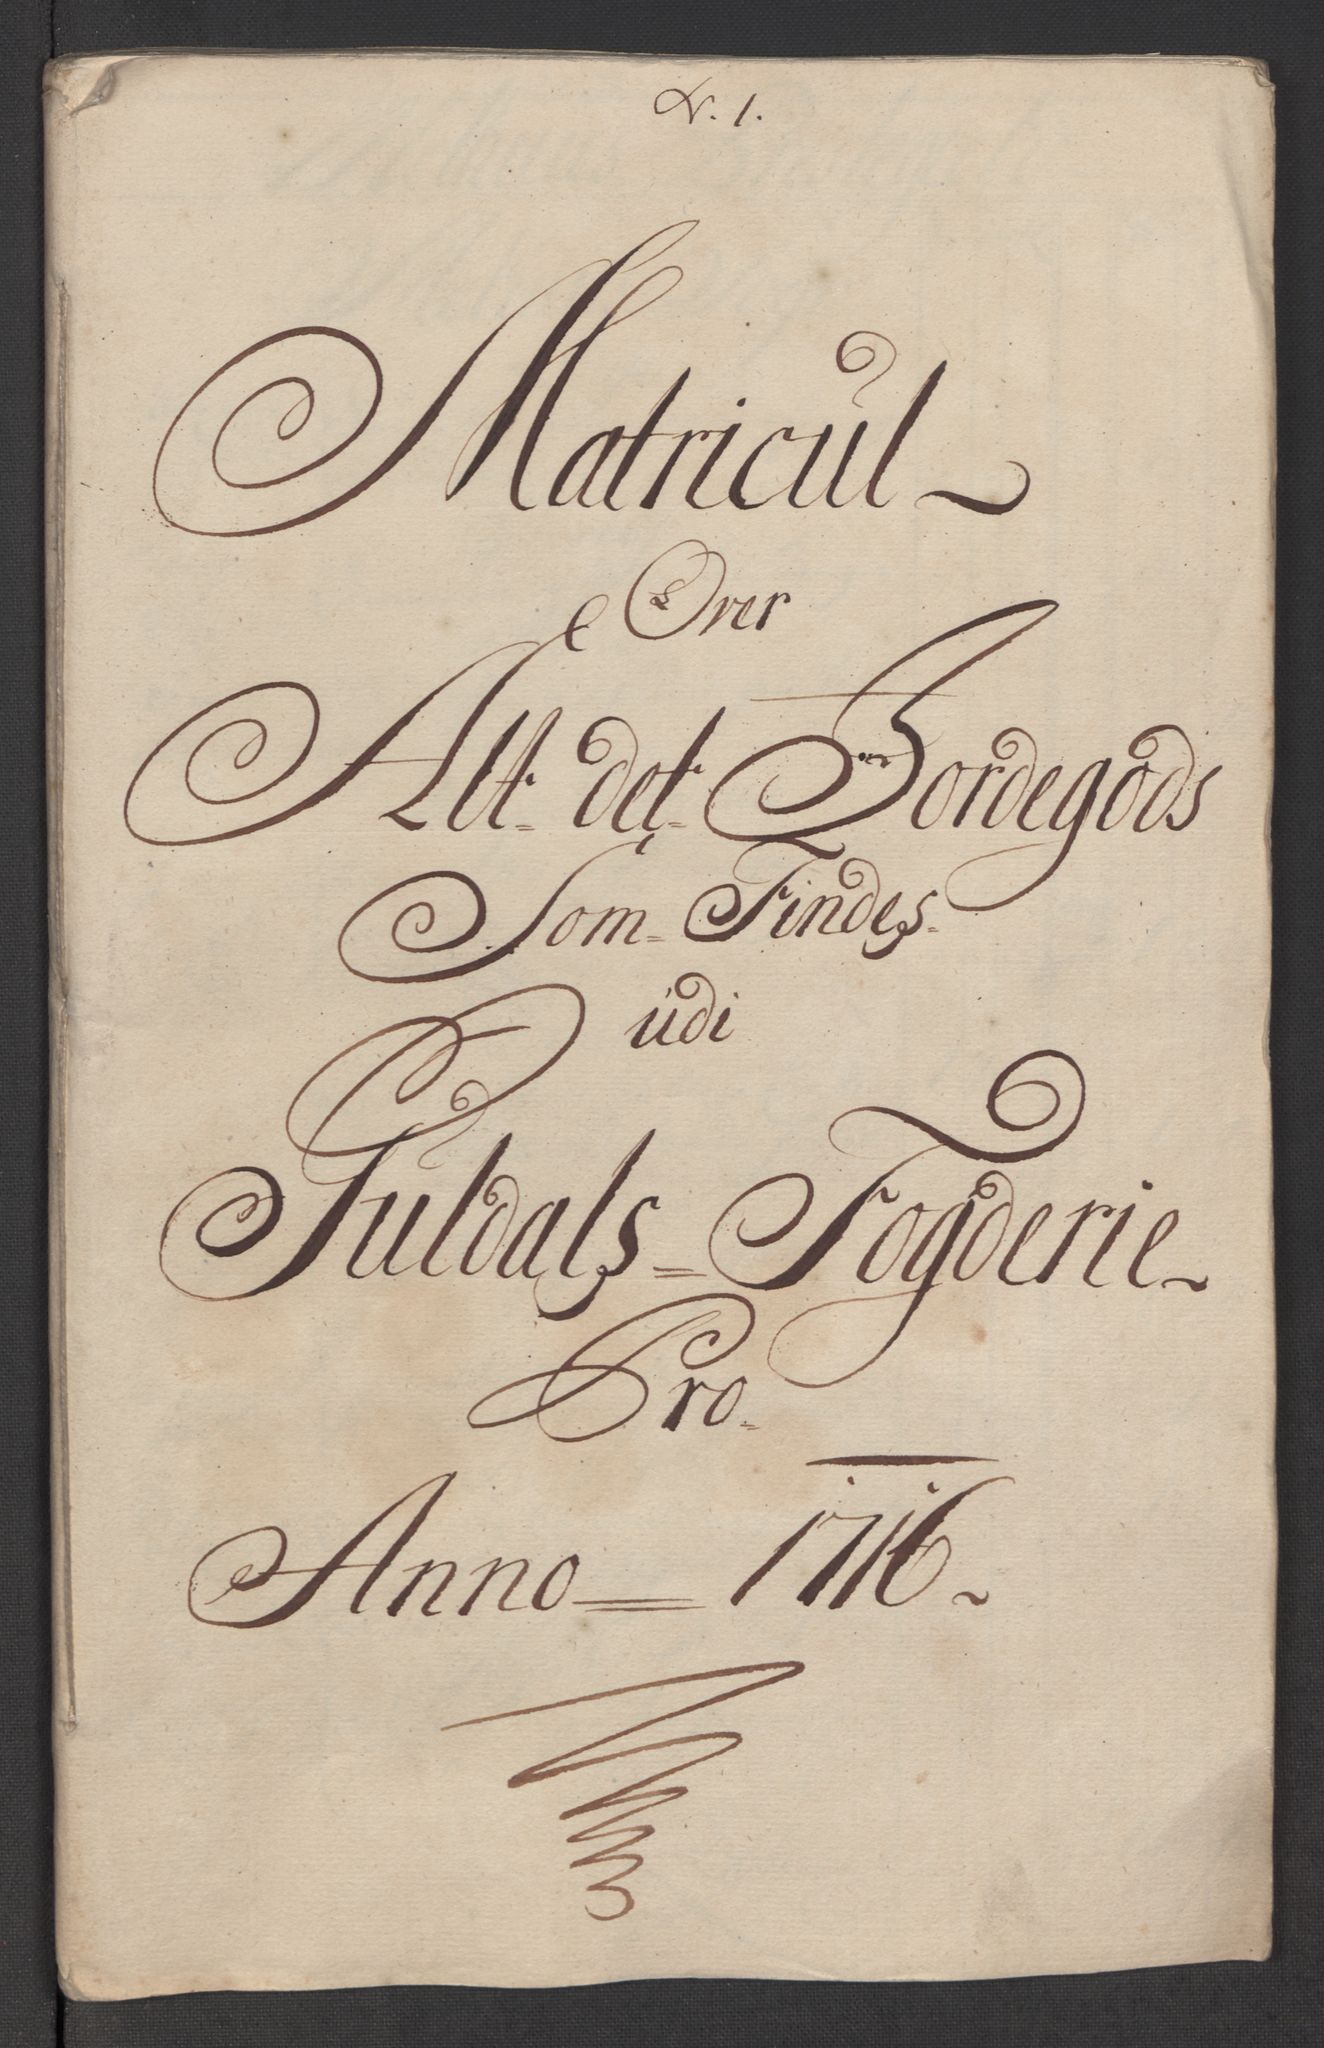 N. 1.
Matricul
Over
Alt det Jordegods
Som Findes
udi
Guldals Fogderie
Pro
Anno 1716